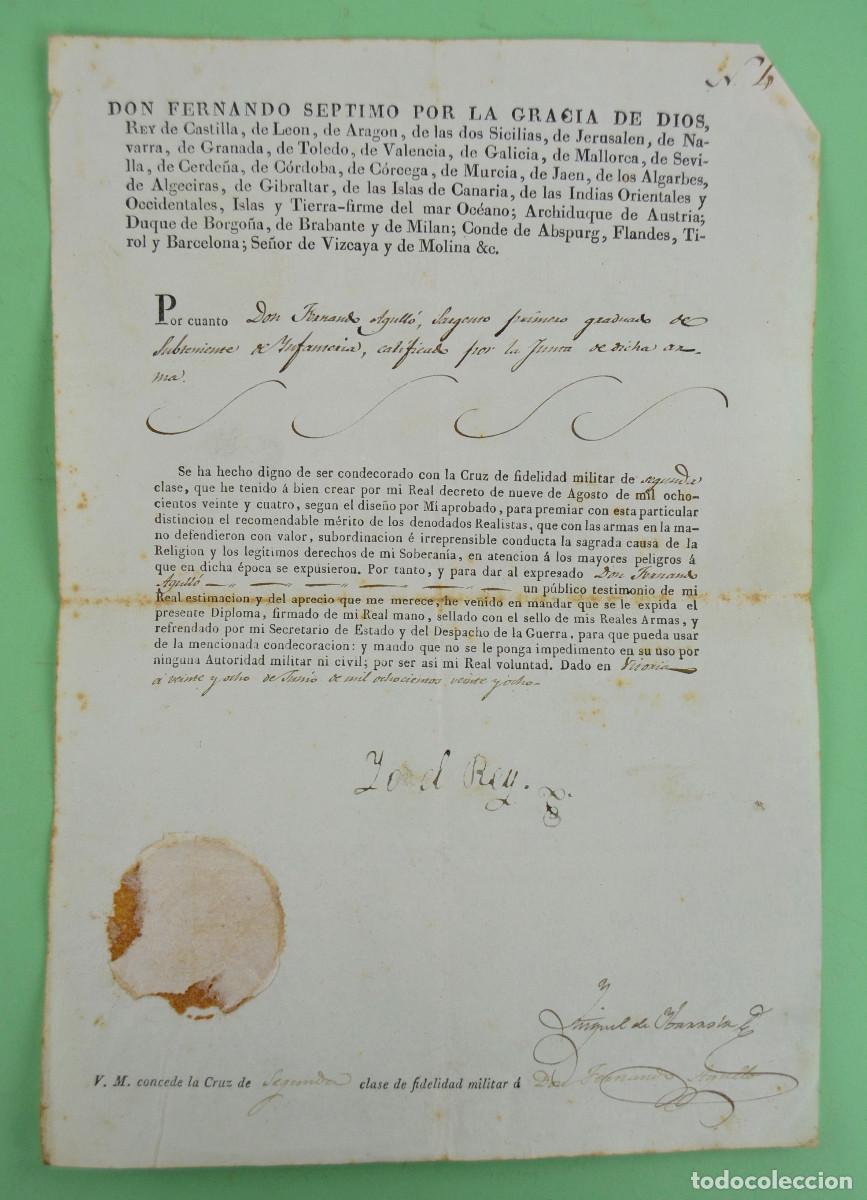 DON FERNANDO SEPTIMO POR LA GRACIA DE DIOS,
REY de Castilla, de Leon, de Aragon, de las dos Sicilias, de Jerusalen, de Na-
varra, de Granada, de Toledo, de Valencia, de Galicia, de Mallorca, de Sevi-
lla, de Cerdeña, de Córdoba, de Córcega, de Murcia, de Jaen, de los Algarbes,
de Algeciras, de Gibraltar, de las Islas de Canaria, de las Indias Orientales y
Occidentales, Islas y Tierra-firme del mar Océano; Archiduque de Austria;
Duque de Borgoña, de Brabante y de Milan; Conde de Abspurg, Flandes, Ti-
rol y Barcelona; Señor de Vizcaya y de Molina &c.
Por cuanto Don Fernando Agulló, Sargento primero graduado de
Subteniente de Infanteria, calificado por la Junta de dicha ar-
ma.
Se ha hecho digno de ser condecorado con la Cruz de fidelidad militar de segunda
clase, que he tenido á bien crear por mi Real decreto de nueve de Agosto de mil ocho-
cientos veinte y cuatro, segun el diseño por Mí aprobado, para premiar con esta particular
distincion el recomendable mérito de los denodados Realistas, que con las armas en la ma-
no defendieron con valor, subordinacion é irreprensible conducta la sagrada causa de la
Religion y los legítimos derechos de mi Soberanía, en atencion á los mayores peligros á
que en dicha época se expusieron. Por tanto, y para dar al expresado Don Fernando
Agulló un público testimonio de mi
Real estimacion y del aprecio que me merece, he venido en mandar que se le expida el
presente Diploma, firmado de mi Real mano, sellado con el sello de mis Reales Armas, y
refrendado por mi Secretario de Estado y del Despacho de la Guerra, para que pueda usar
de la mencionada condecoracion: y mando que no se le ponga impedimento en su uso por
ninguna Autoridad militar ni civil; por ser asi mi Real voluntad. Dado en Vitoria
á veinte y ocho de Junio de mil ochocientos veinte y ocho.
Yo el Rey.
Miguel de Ibarrola
V. M. concede la Cruz de Segunda clase de fidelidad militar á Don Fernando Agulló
todocoleccion